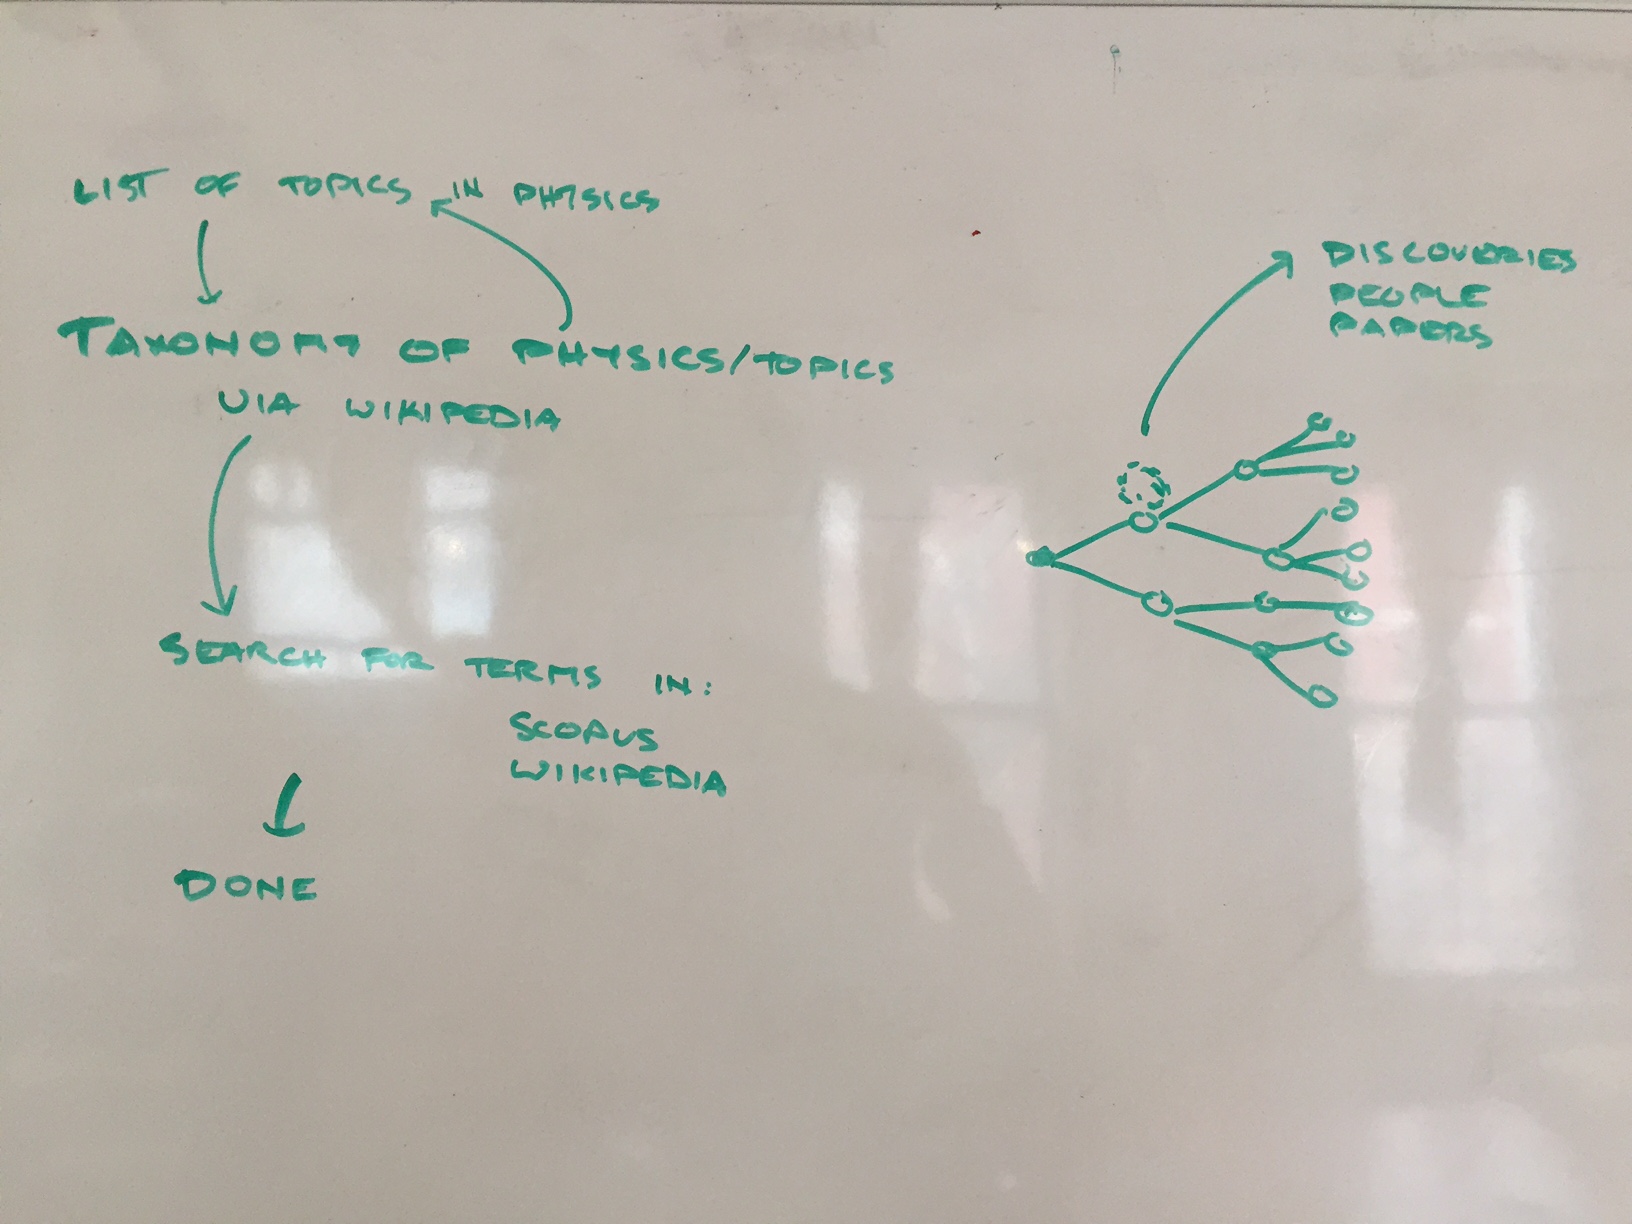 LIST OF TOPICS IN PHYSICS
TAXONOMY OF PHYSICS/TOPICS
VIA WIKIPEDIA
SEARCH FOR TERMS IN:
SCOPUS
WIKIPEDIA
DONE
DISCOVERIES
PEOPLE
PAPERS